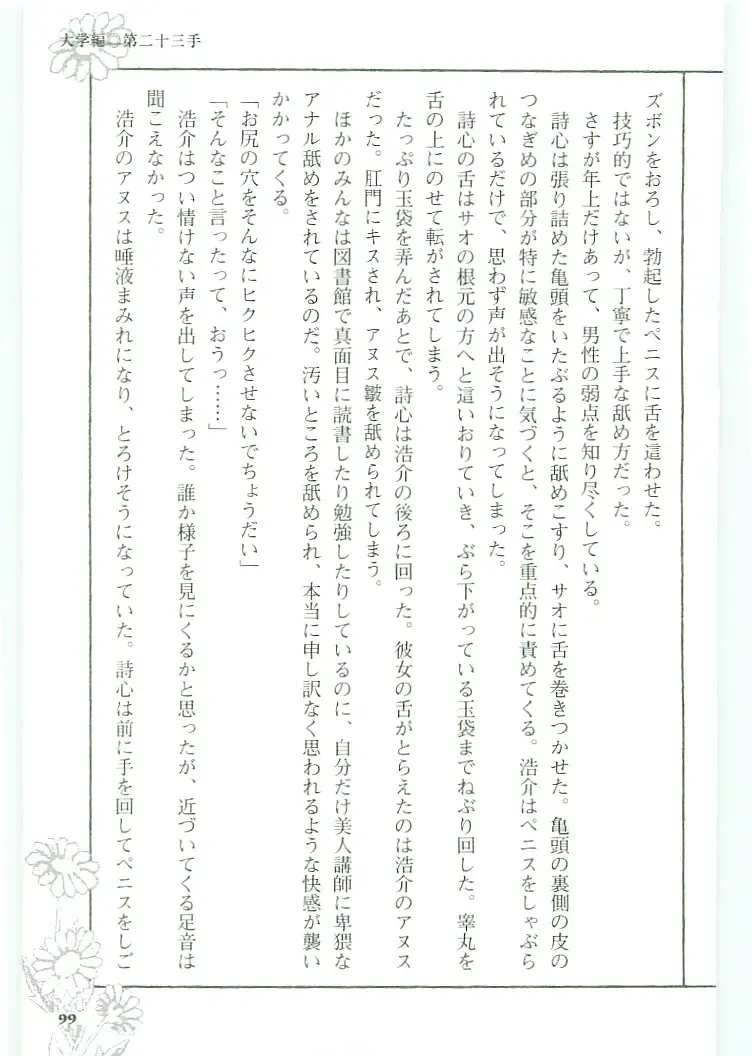 大学編 第二十三手
ズボンをおろし、勃起したペニスに舌を這わせた。
技巧的ではないが、丁寧で上手な舐め方だった。
さすが年上だけあって、男性の弱点を知り尽くしている。
詩心は張り詰めた亀頭をいたぶるように舐めこすり、サオに舌を巻きつかせた。亀頭の裏側の皮の
つなぎめの部分が特に敏感なことに気づくと、そこを重点的に責めてくる。浩介はペニスをしゃぶら
れているだけで、思わず声が出そうになってしまった。
詩心の舌はサオの根元の方へと這いおりていき、ぶら下がっている玉袋までねぶり回した。睾丸を
舌の上にのせて転がされてしまう。
たっぷり玉袋を弄んだあとで、詩心は浩介の後ろに回った。彼女の舌がとらえたのは浩介のアヌス
だった。肛門にキスされ、アヌス皺を舐められてしまう。
ほかのみんなは図書館で真面目に読書したり勉強したりしているのに、自分だけ美人講師に卑猥な
アナル舐めをされているのだ。汚いところを舐められ、本当に申し訳なく思われるような快感が襲い
かかってくる。
「お尻の穴をそんなにヒクヒクさせないでちょうだい」
「そんなこと言ったって、おうっ……」
浩介はつい情けない声を出してしまった。誰か様子を見にくるかと思ったが、近づいてくる足音は
聞こえなかった。
浩介のアヌスは唾液まみれになり、とろけそうになっていた。詩心は前に手を回してペニスをしご
99